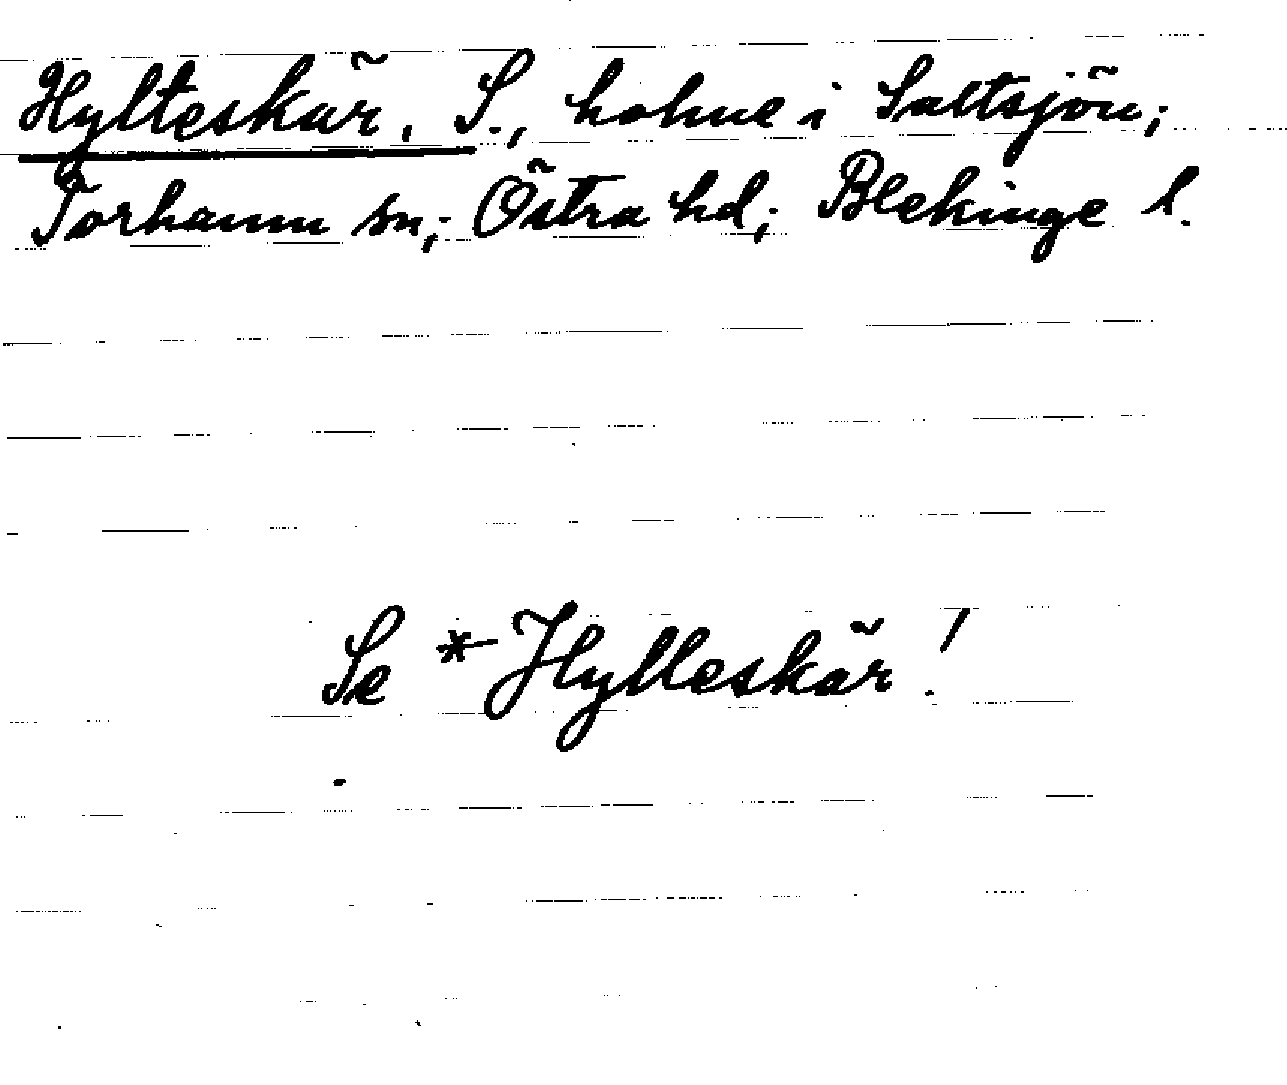 Hylteskär, S., holme i Saltsjön;
Torhamn sn; Östra hd; Blekinge l.
Se * Hylleskär!